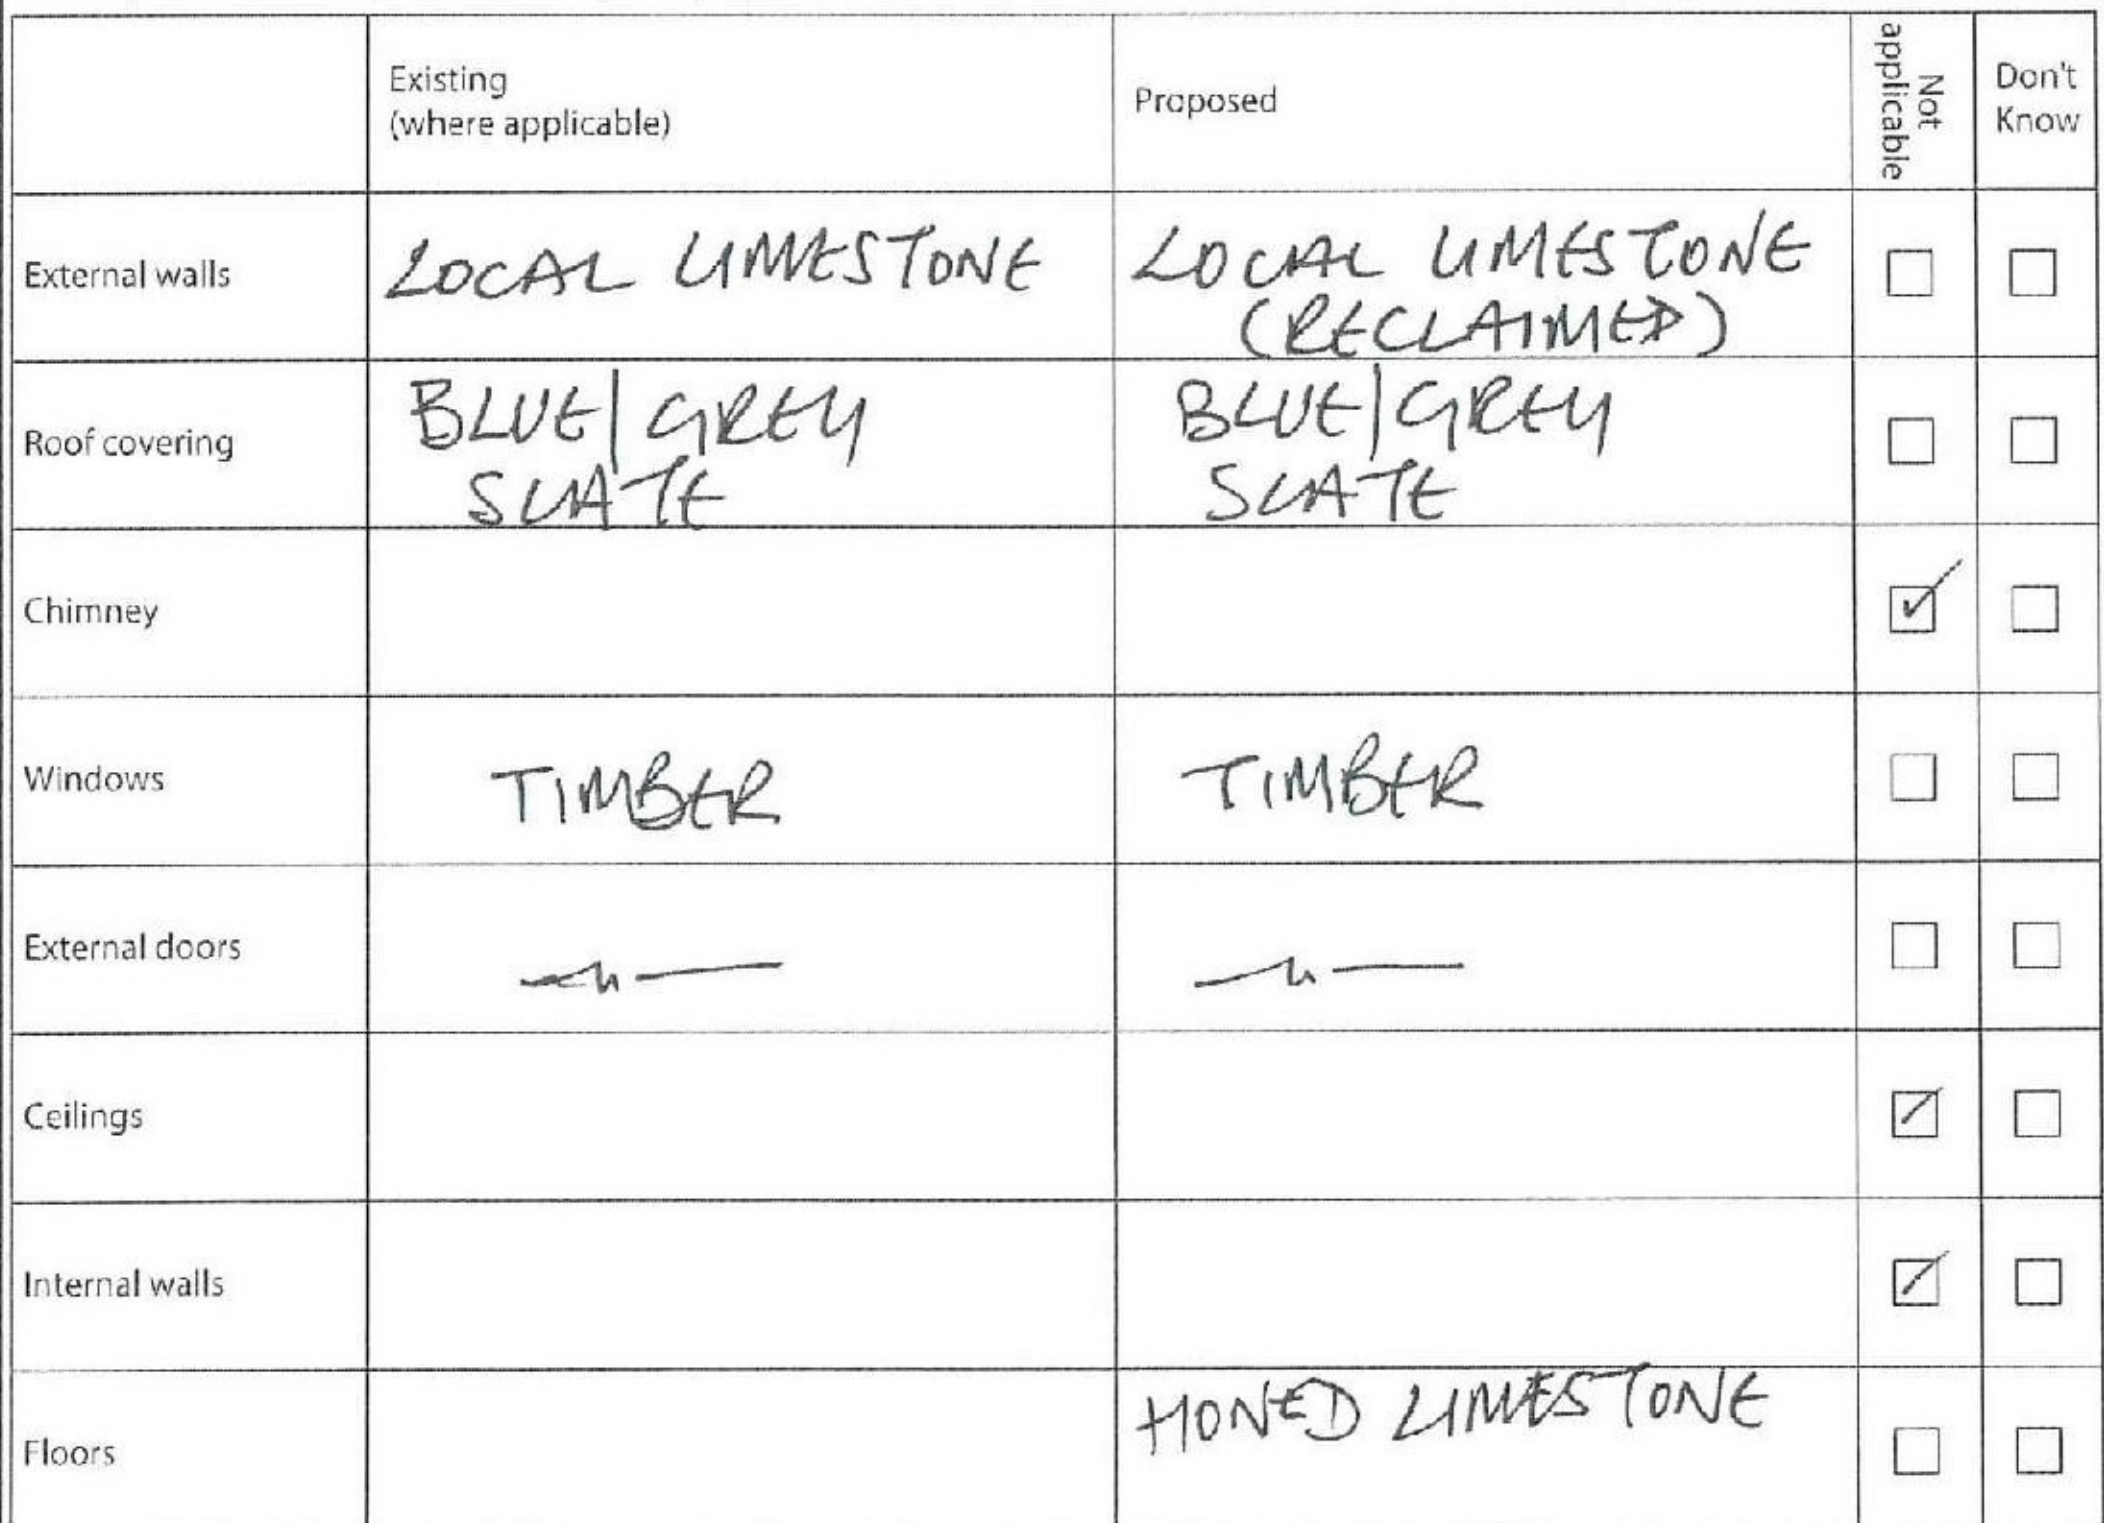 Existing
(where applicable)
Proposed
Not
applicable
Don't
Know
External walls
LOCAL LIMESTONE
LOCAL LIMESTONE
(RECLAIMED)
Roof covering
BLUE/GREY
SLATE
BLUE/GREY
SLATE
Chimney
Windows
TIMBER
TIMBER
External doors
—〃—
—〃—
Ceilings
Internal walls
Floors
HONED LIMESTONE